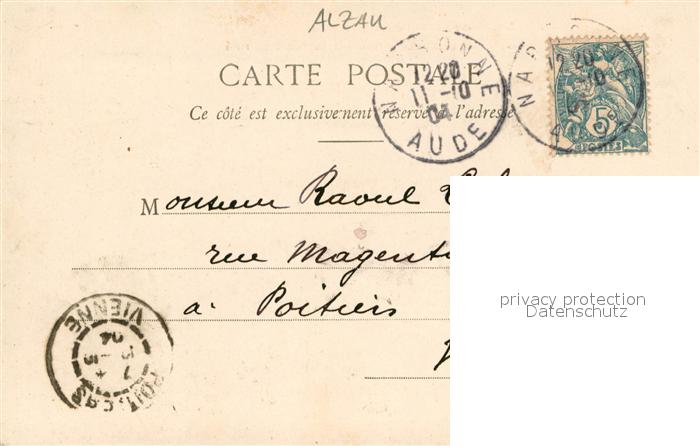 ALZAU
CARTE POSTALE
Ce côté est exclusivement réservé à l'adresse
NARBONNE
12 20
11 -10
04
AUDE
12 20
5
POSTES
Monsieur Raoul
rue Magenta
à Poitiers
POITIERS
VIENNE
04
privacy protection
Datenschutz